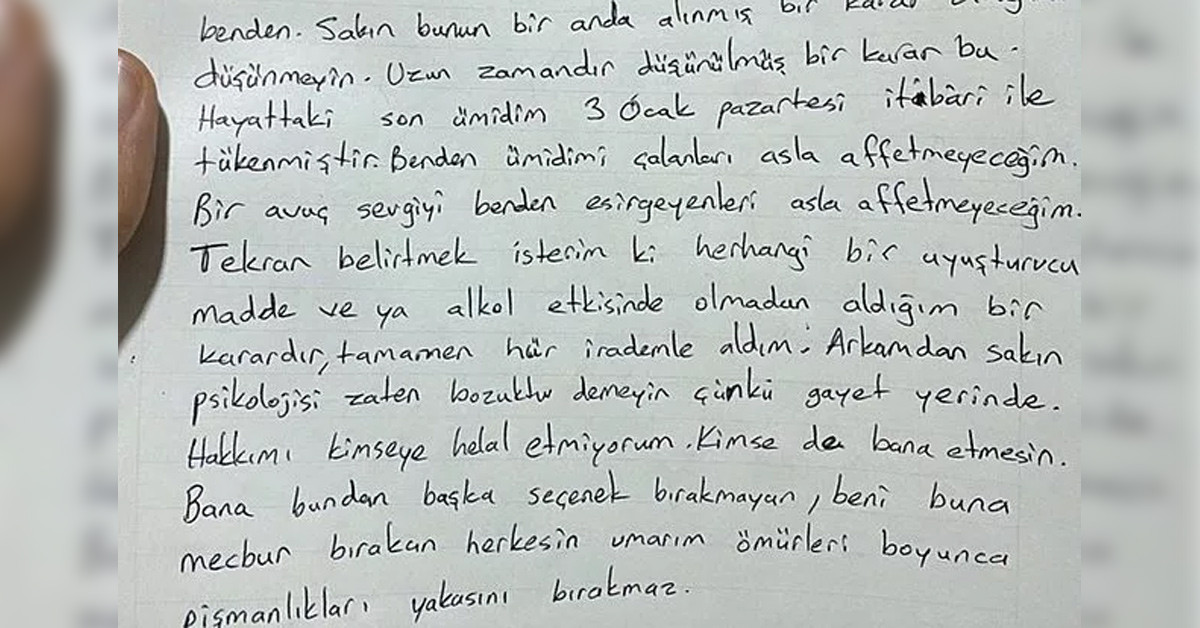 benden. Sakın bunun bir anda alınmış bir karar
düşünmeyin. Uzun zamandır düşünülmüş bir karar bu.
Hayattaki son ümidim 3 Ocak pazartesi itibâri ile
tükenmiştir. Benden ümidimi çalanları asla affetmeyeceğim.
Bir avuç sevgiyi benden esirgeyenleri asla affetmeyeceğim.
Tekran belirtmek isterim ki herhangi bir uyuşturucu
madde ve ya alkol etkisinde olmadan aldığım bir
karardır, tamamen hür irademle aldım. Arkamdan sakın
psikolojisi zaten bozuktu demeyin çünkü gayet yerinde.
Hakkımı kimseye helal etmiyorum. Kimse de bana etmesin.
Bana bundan başka seçenek bırakmayan, beni buna
mecbur bırakan herkesin umarım ömürleri boyunca
pişmanlıkları yakasını bırakmaz.